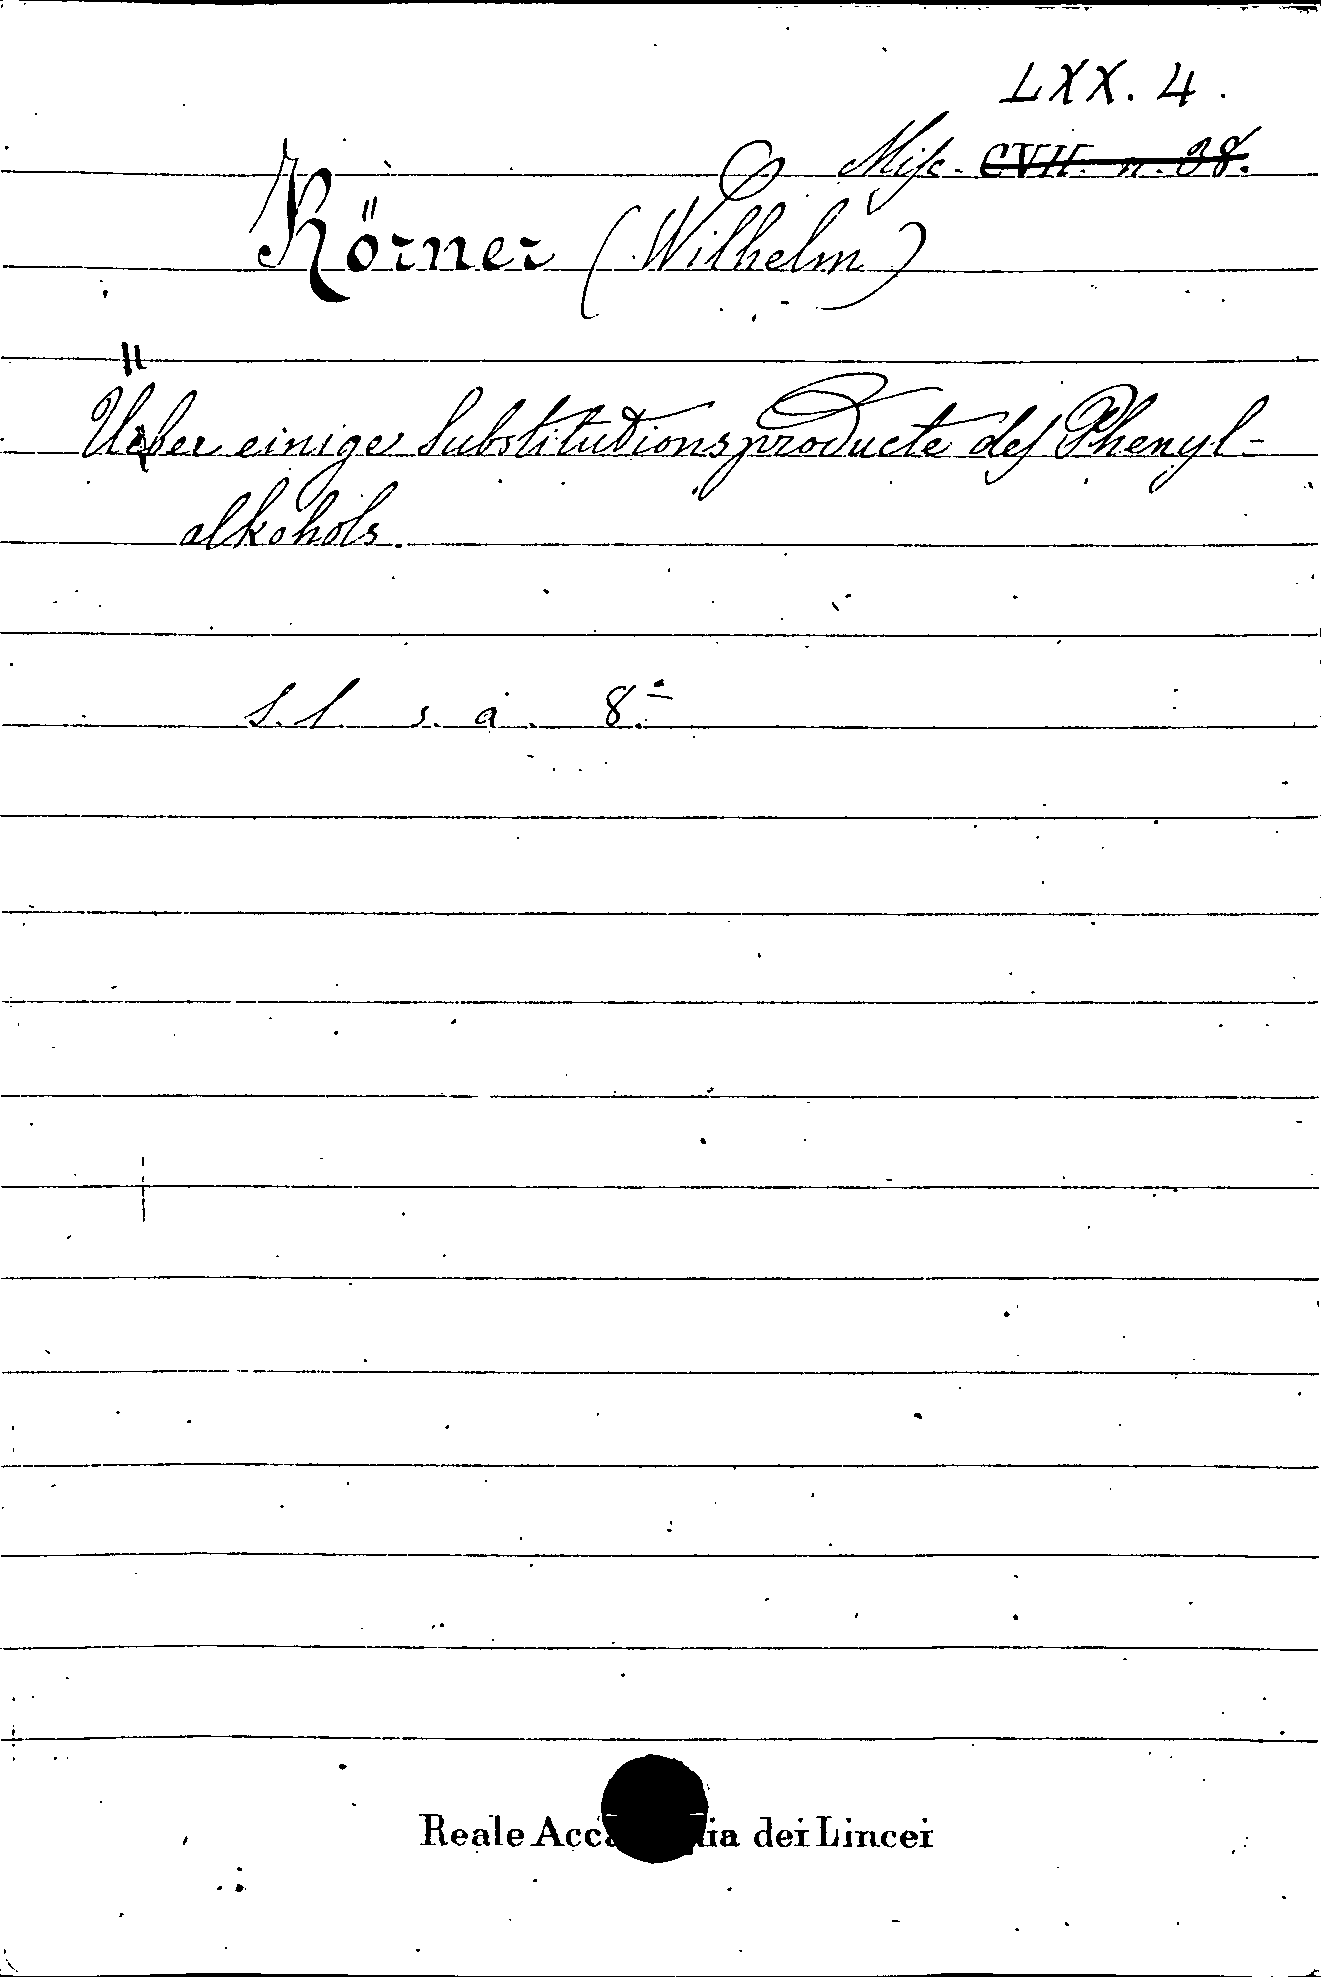 LXX. 4.
Misc. CVII. n. 38.
Körner (Wilhelm)
Ueber einige Substitutionsproducte des Phenyl-
alkohols.
S. l. s. a. 8.°
Reale Acca ia dei Lincei